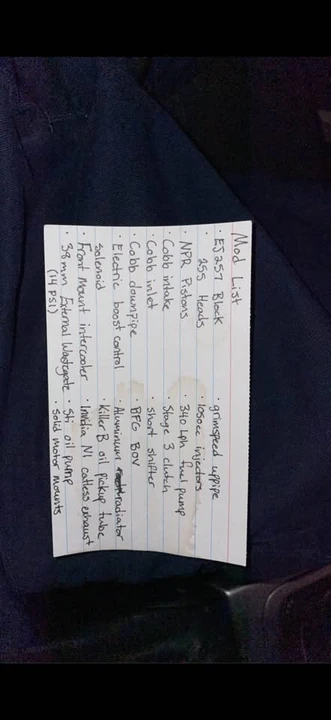 Mod List
· EJ257 Block
255 Heads
· NPR Pistons
· Cobb intake
· Cobb inlet
· Cobb downpipe
· Electric boost control
Solenoid
· Front Mount intercooler
· 38mm External Wastegate
(14 PSI)
· grimspeed uppipe
· 1050cc injectors
· 340 Lph fuel pump
Stage 3 clutch
· short shifter
· BFG BOV
· Aluminum radiator
· Killer B oil pickup tube
· Invidia N1 catless exhaust
· Sti oil pump
· Solid motor mounts